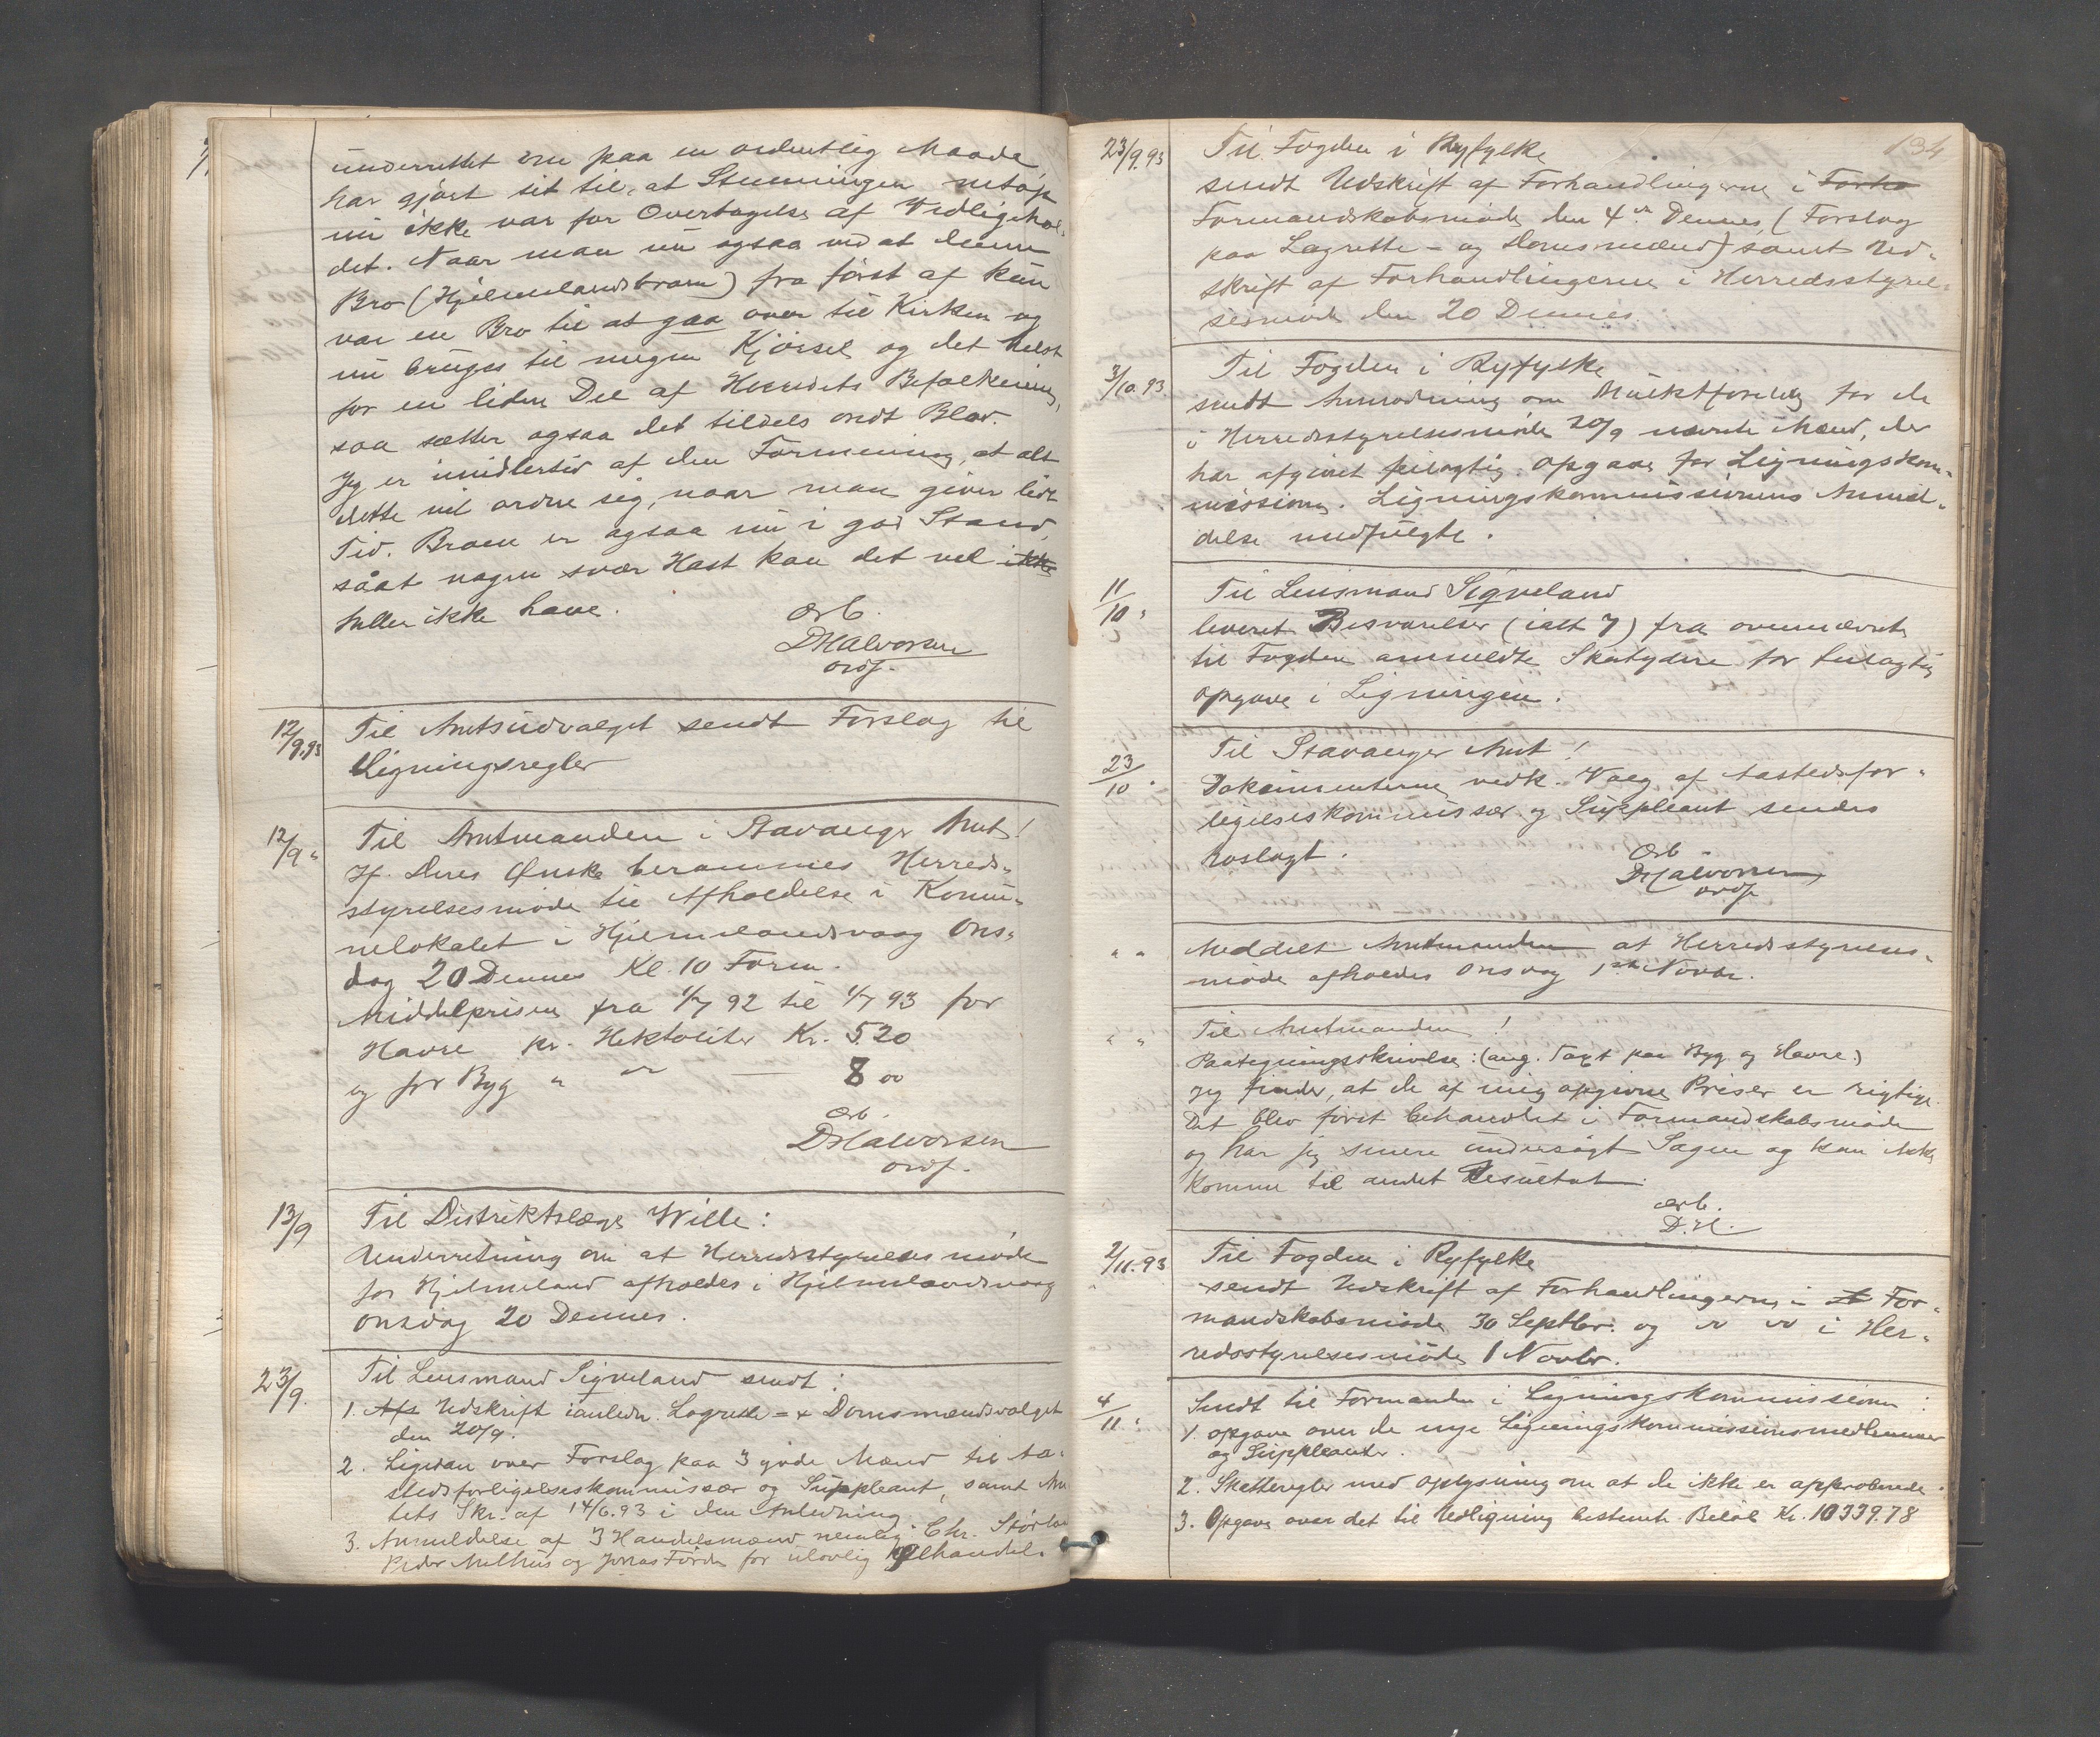 underrettet om paa en ordentlig Maade
har gjort sit til, at Stemningen netop
nu ikke var for Overtagelse af Vedligehol-
det. Naar man nu ogsaa ved at denne
Bro (Hjelmelandsbroen) fra först af kun
var en Bro til at gaa over til Kirken og
nu bruges til megen Kjörsel og det helst
for en liden Del af Herredets Befolkning,
saa sætter ogsaa det tildels ondt Blod.
Jeg er imidlertid af den Formening, at alt
dette vil ordne sig, naar man giver lidt
Tid. Broen er ogsaa nu i god Stand,
såat nogen svær Hast kan det vel ikke
heller ikke have.
Ærb.
DHalvorsen
ordf.
12/9.93
Til Amtsudvalget sendt Forslag til
Ligningsregler
12/9 "
Til Amtmanden i Stavanger Amt!
If. Deres Ønske berammes Herreds-
styrelsesmöde til Afholdelse i Komu-
nelokalet i Hjelmelandsvaag Ons-
dag 20 Dennes Kl. 10 Form.
Middelprisen fra 1/7 92 til 1/7 93 for
Havre pr. Hektoliter Kr. 5.20
og for Byg " " — 8 00
Ærb.
DHalvorsen
ordf.
13/9
Til Distriktslæge Wille:
Underretning om at Herredsstyrelsesmöde
for Hjelmeland afholdes i Hjelmelandsvaag
onsdag 20 Dennes.
23/9.
Til Lensmand Sigveland sendt:
1. Afs Udskrift ianledn. Lagrette- & Domsmændsvalget
den 20/9.
2. Ligedan over Forslag paa 3 gode Mænd til Aa-
stedsforligelseskommissær og Suppleant, samt Am
tets Skr. af 14/6.93 i den Anledning
3. Anmeldelse af 3 Handelsmænd nemlig Chr.
Peder Melhus og Jonas Förde for ulovlig Ölhandel.
134
23/9.93
Til Fogden i Ryfylke
sendt Udskrift af Forhandlingerne i Forha
Formandskabsmöde den 4de Dennes, (Forslag
paa Lagrette- og Domsmænd) samt Ud-
skrift af Forhandlingerne i Herredsstyrel-
sesmöde den 20 Dennes.
3/10.93.
Til Fogden i Ryfylke
sendt Anmodning om Mulktforelæg for de
i Herredsstyrelsesmöde 20/9 nævnte Mænd, der
har afgivet feilagtig Opgave for Ligningskom-
missionen. Ligningskommissionens Anmel-
delse medfulgte.
11/10 "
Til Lensmand Sigveland
leveret Besvarelser (ialt 7) fra ovennævnte
til Fogden anmeldte Skatydere for feilagtig
opgave i Ligningen.
23/10 "
Til Stavanger Amt!
Dokumenterne vedk. Valg af Aastedsfor-
ligelseskommissær og Suppleant sendes
vedlagt.
Ærb
DHalvorsen
ordf
" "
Meddelt Amtmanden at Herredsstyrelses-
möde afholdes Onsdag 1ste Novbr.
" "
Til Amtmanden!
Paategningsskrivelse: (ang. Taxt paa Byg og Havre)
Jeg finder, at de af mig opgivne Priser er rigtige.
Det blev först behandlet i Formandskabsmöde
og har jeg senere undersögt Sagen og kan ikke
komme til andet Resultat.
Ærb.
D.H.
2/11.93
Til Fogden i Ryfylke
sendt Udskrift af Forhandlingerne i For-
mandskabsmöde 30 Septbr. og " " i Her-
redsstyrelsesmöde 1 Novbr.
4/11 "
Sendt til Formanden i Ligningskommissionen:
1. opgave over de nye Ligningskommissionsmedlemmer
og Suppleanter.
2. Skatteregler med oplysning om at de ikke er approberede.
3. Opgave over det til Udligning bestemte Belöb Kr. 10339.78